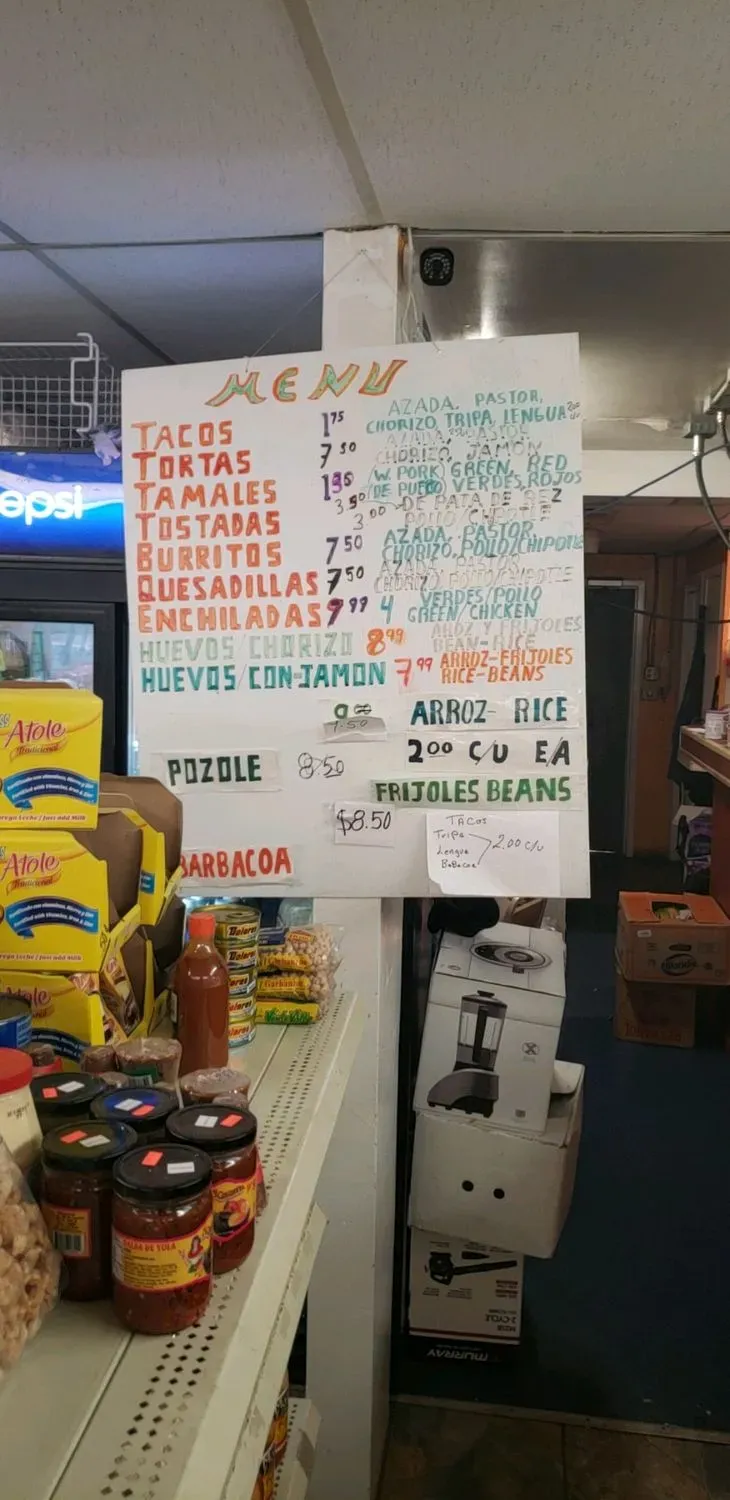 MENU
TACOS 1 75 AZADA, PASTOR,
CHORIZO, TRIPA, LENGUA 200 c/u
TORTAS 7 50 AZADA, PASTOR
CHORIZO, JAMON
TAMALES 1 (W. PORK) GREEN, RED
(DE PUERCO) VERDES, ROJOS
TOSTADAS 3.50 DE PATA DE REZ
3 00 POLLO/CHIPOTLE
BURRITOS 7 50 AZADA, PASTOR
CHORIZO, POLLO/CHIPOTLE
QUESADILLAS 7 50 AZADA, PASTOR
CHORIZO/POLLO/CHIPOTLE
ENCHILADAS 9 99 4 VERDES/POLLO
GREEN/CHICKEN
HUEVOS/CHORIZO 8 99 AROZ Y FRIJOLES
BEAN-RICE
HUEVOS/CON-JAMON 7 99 ARROZ-FRIJOLES
RICE-BEANS
ARROZ- RICE
2 00 C/U EA
POZOLE 8.50
FRIJOLES BEANS
$8.50
BARBACOA
TACOS
Tripa
Lengua 2.00 c/u
epsi
Atole
Tradicional
Atole
Tradicional
Dolores
Dolores
Dolores
Garbanzo
Garbanzo
2-CYCLE
MURRAY